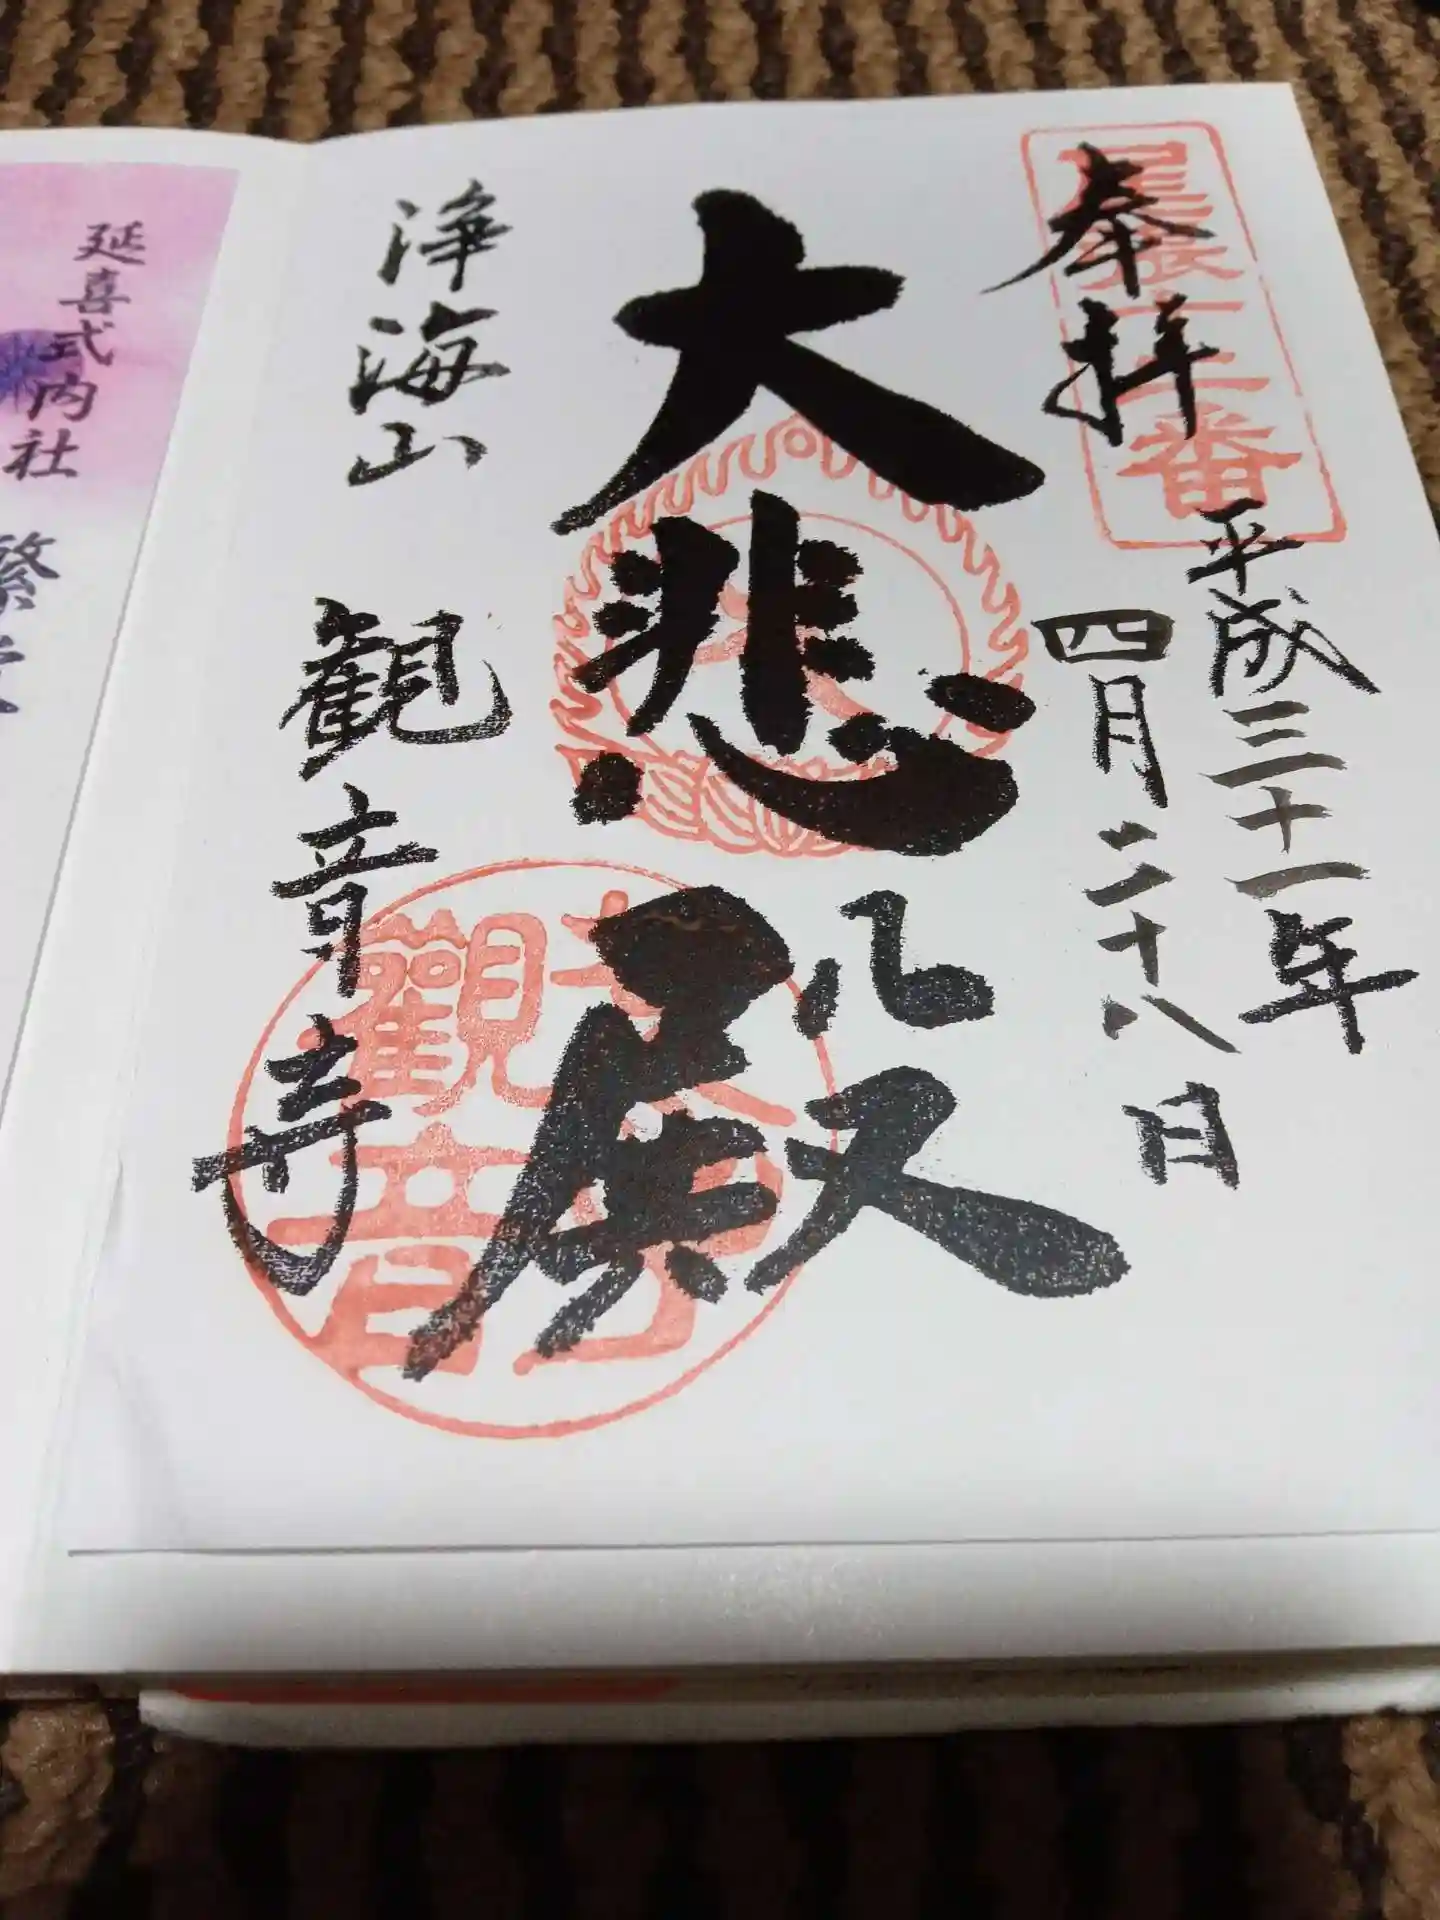 奉拝
尾張三十三番
平成三十一年
四月二十八日
大悲殿
浄海山
観音寺
延喜式内社